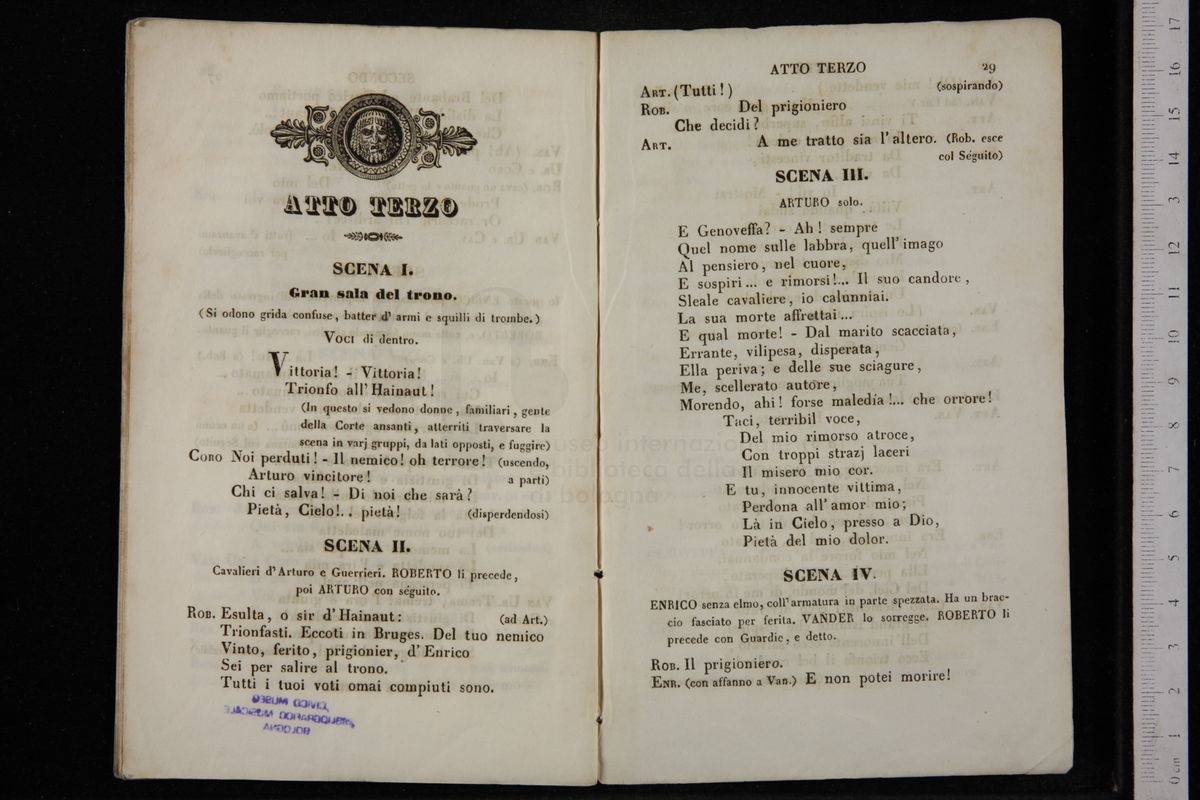 ATTO TERZO
SCENA I.
Gran sala del trono.
(Si odono grida confuse, batter d' armi e squilli di trombe.)
VOCI di dentro.
Vittoria! - Vittoria!
Trionfo all' Hainaut!
(In questo si vedono donne, familiari, gente
della Corte ansanti, atterriti traversare la
scena in varj gruppi, da lati opposti, e fuggire)
CORO Noi perduti! - Il nemico! oh terrore! (uscendo,
Arturo vincitore! a parti)
Chi ci salva! - Di noi che sarà?
Pietà, Cielo!.. pietà! (disperdendosi)
SCENA II.
Cavalieri d' Arturo e Guerrieri. ROBERTO li precede,
poi ARTURO con séguito.
ROB. Esulta, o sir d' Hainaut: (ad Art.)
Trionfasti. Eccoti in Bruges. Del tuo nemico
Vinto, ferito, prigionier, d' Enrico
Sei per salire al trono.
Tutti i tuoi voti omai compiuti sono.
CIVICO MUSEO
BIBLIOGRAFICO MUSICALE
BOLOGNA
ATTO TERZO 29
ART. (Tutti!) (sospirando)
ROB. Del prigioniero
Che decidi?
ART. A me tratto sia l' altero. (Rob. esce
col Séguito)
SCENA III.
ARTURO solo.
E Genoveffa? - Ah! sempre
Quel nome sulle labbra, quell' imago
Al pensiero, nel cuore,
E sospiri... e rimorsi!... Il suo candore,
Sleale cavaliere, io calunniai.
La sua morte affrettai...
E qual morte! - Dal marito scacciata,
Errante, vilipesa, disperata,
Ella periva; e delle sue sciagure,
Me, scellerato autore,
Morendo, ahi! forse maledía!... che orrore!
Taci, terribil voce,
Del mio rimorso atroce,
Con troppi strazj laceri
Il misero mio cor.
E tu, innocente vittima,
Perdona all' amor mio;
Là in Cielo, presso a Dio,
Pietà del mio dolor.
SCENA IV.
ENRICO senza elmo, coll' armatura in parte spezzata. Ha un brac-
cio fasciato per ferita. VANDER lo sorregge. ROBERTO li
precede con Guardie, e detto.
ROB. Il prigioniero.
ENR. (con affanno a Van.) E non potei morire!
museo internazionale
biblioteca della
di bologna
0 cm 1 2 3 4 5 6 7 8 9 10 11 12 13 14 15 16 17